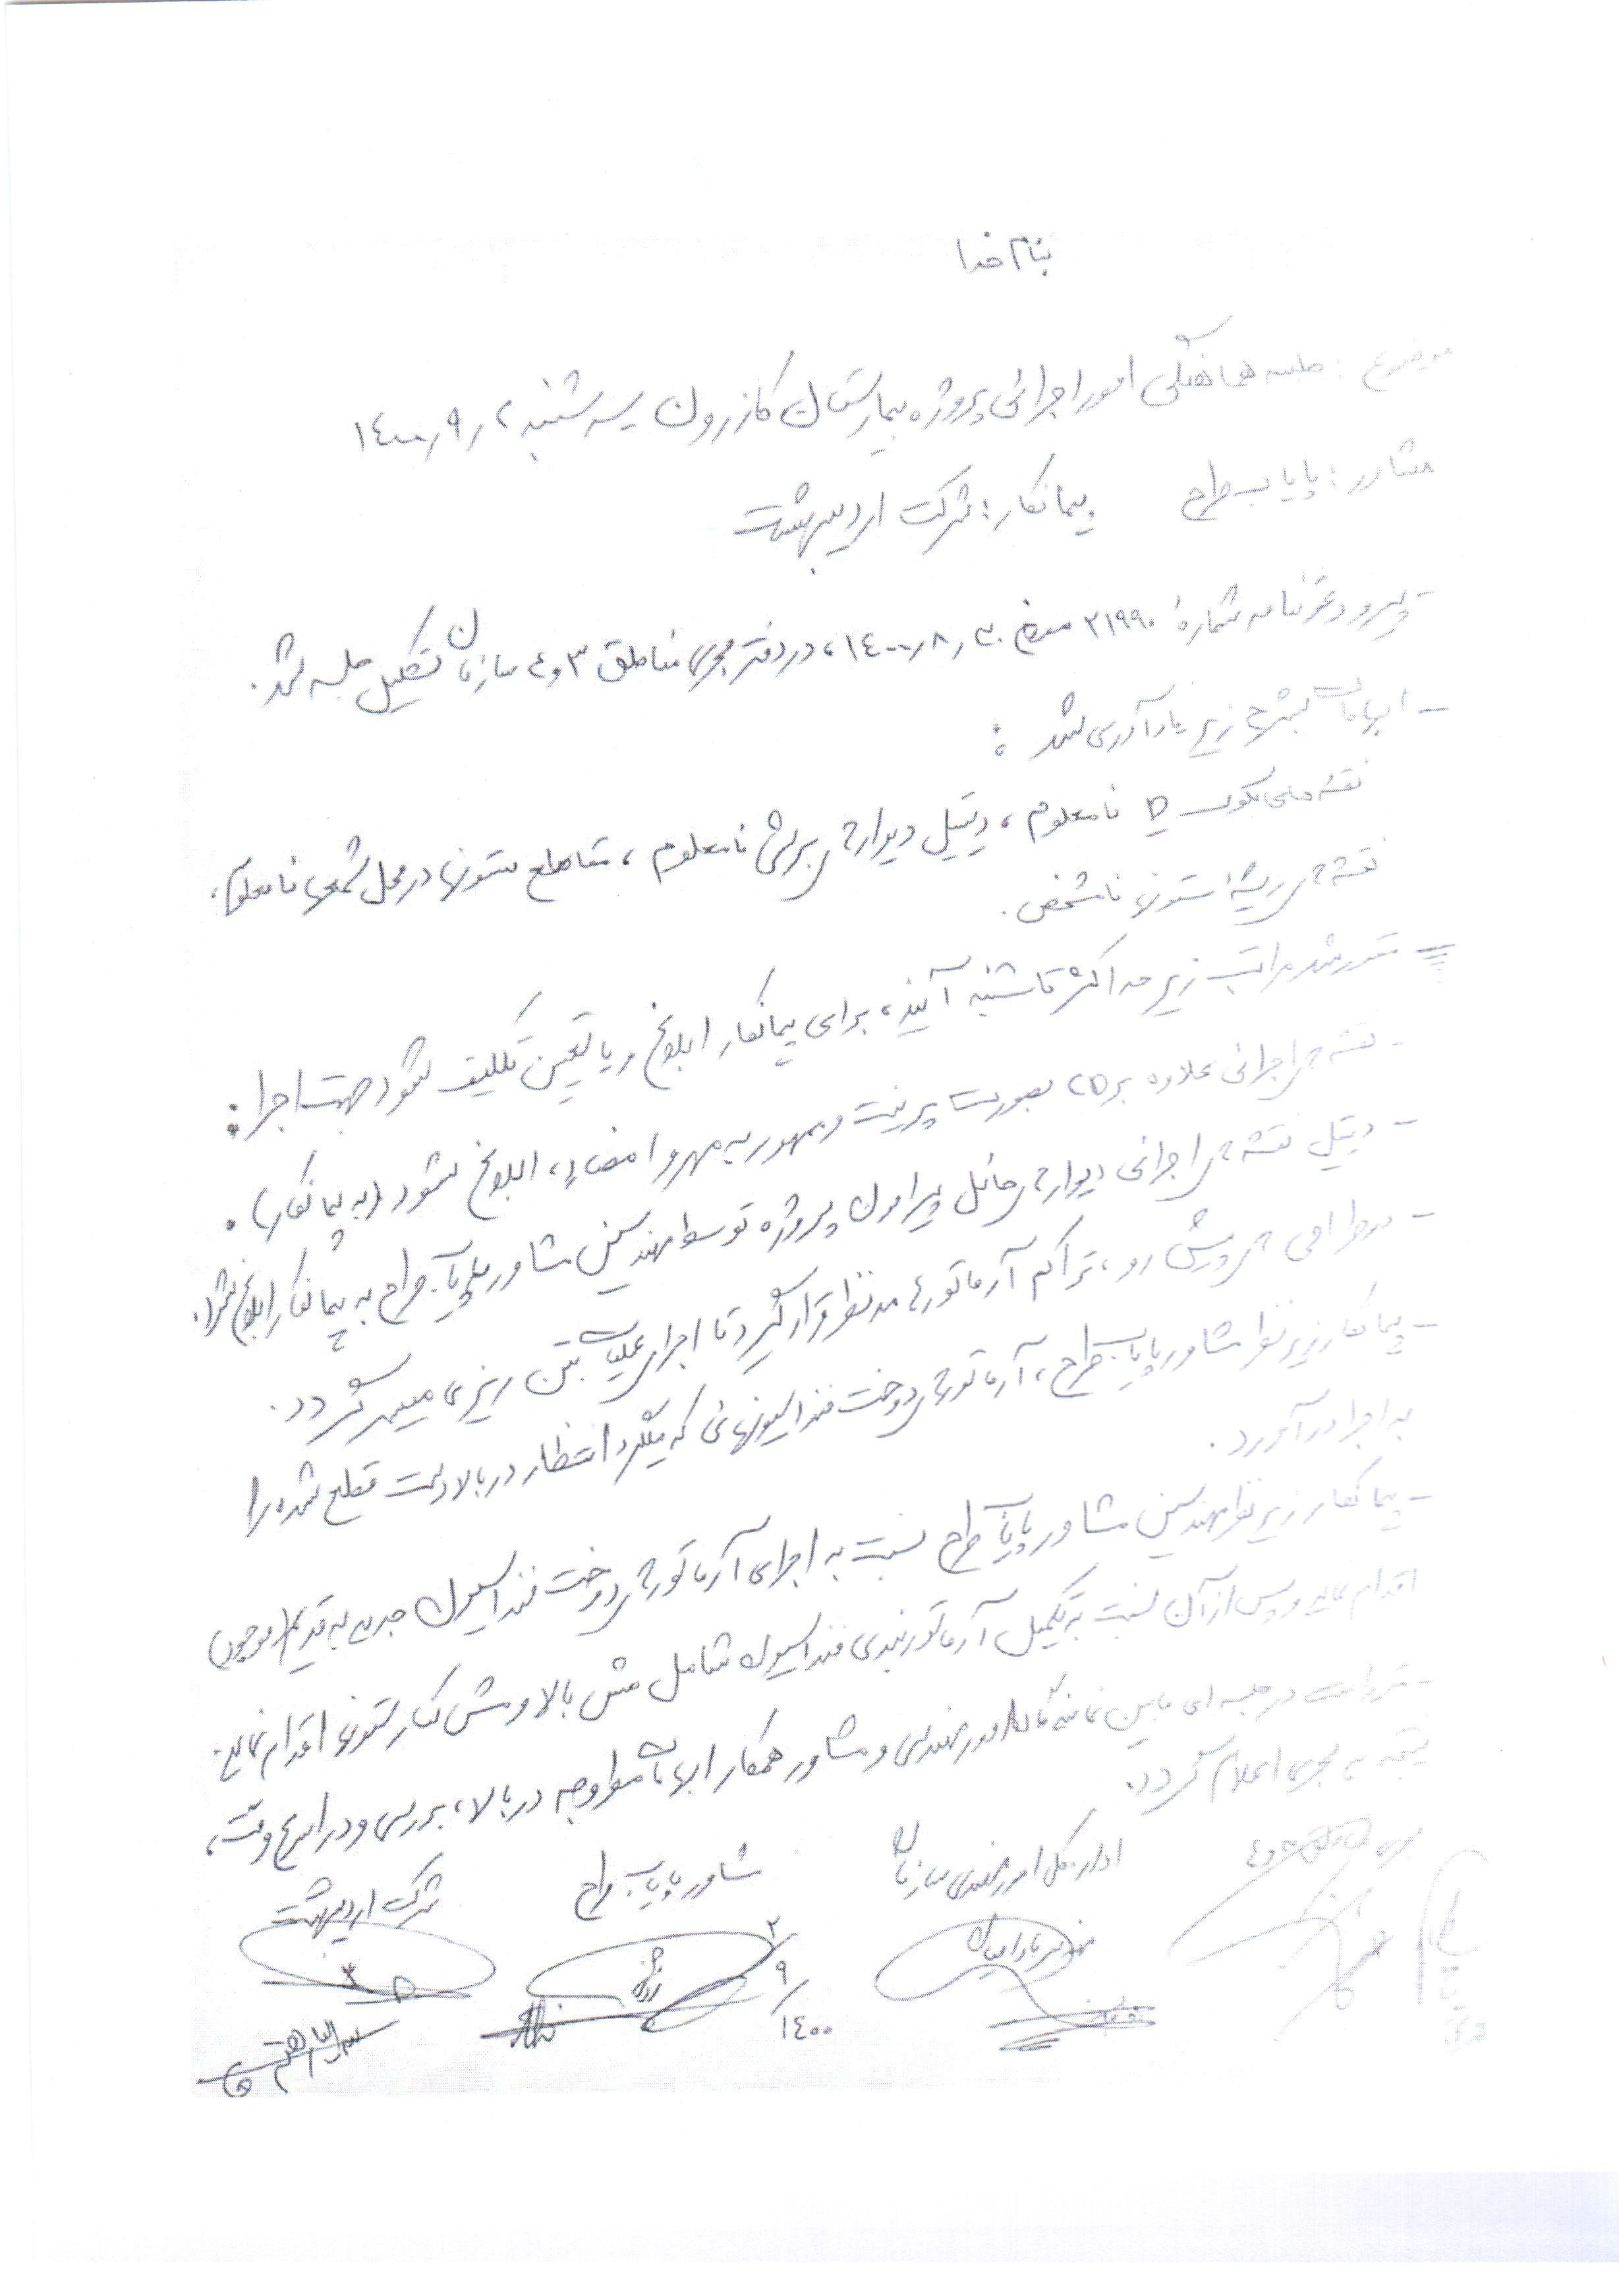 بنام خدا
موضوع: جلسه هماهنگی امور اجرائی پروژه بیمارستان کازرون سه شنبه ۲ر۹ر۱۴۰۰
مشاور: پایاب طرح پیمانکار: شرکت اردیبهشت
- پیرو دعوتنامه شماره ۳۱۹۹۰ مورخ ۳۰ر۸ر۱۴۰۰، در دفتر مجری مناطق ۳و۴ سازمان تشکیل جلسه شد.
- ابهامات بشرح زیر یادآوری شد:
نقشه های بلوک D نامعلوم، دیتیل دیوارهای برشی نامعلوم، مقاطع ستونها در محل شمعها نامعلوم،
نقشه های ریشه ستونها نامشخص.
مقرر شد مراتب زیر حداکثر تا شنبه آینده، برای پیمانکار ابلاغ و یا تعیین تکلیف شود جهت اجرا:
- نقشه های اجرائی علاوه بر CD بصورت پرینت و ممهور به مهر و امضاء، ابلاغ شود (به پیمانکار).
- دیتیل نقشه های اجرائی دیوارهای حائل پیرامون پروژه توسط مهندسین مشاور پایاب طرح به پیمانکار ابلاغ شود.
- در طراحی های پیش رو، تراکم آرماتورها مد نظر قرار گیرد تا اجرای عملیات بتن ریزی میسر گردد.
- پیمانکار زیر نظر مشاور پایاب طرح، آرماتورهای دوخت فنداسیونهائی که میلگرد انتظار در بالادست قطع شده را
به اجرا درآورد.
- پیمانکار زیر نظر مهندسین مشاور پایاب طرح نسبت به اجرای آرماتورهای دوخت فنداسیون جدید به قدیم (موجود)
اقدام نماید و پس از آن نسبت به تکمیل آرماتوربندی فنداسیون شامل مش بالا و مش کنار ستونها اقدام نماید.
- مقرر است در جلسه ای مابین نمایندگان امور مهندسی و مشاور همکار ابهامات مطروحه در بالا، بررسی و در اسرع وقت،
نتیجه به مجری اعلام گردد.
اداره کل امور مهندسی سازمان
مشاور پایاب طرح
شرکت اردیبهشت
۲/۹/۱۴۰۰